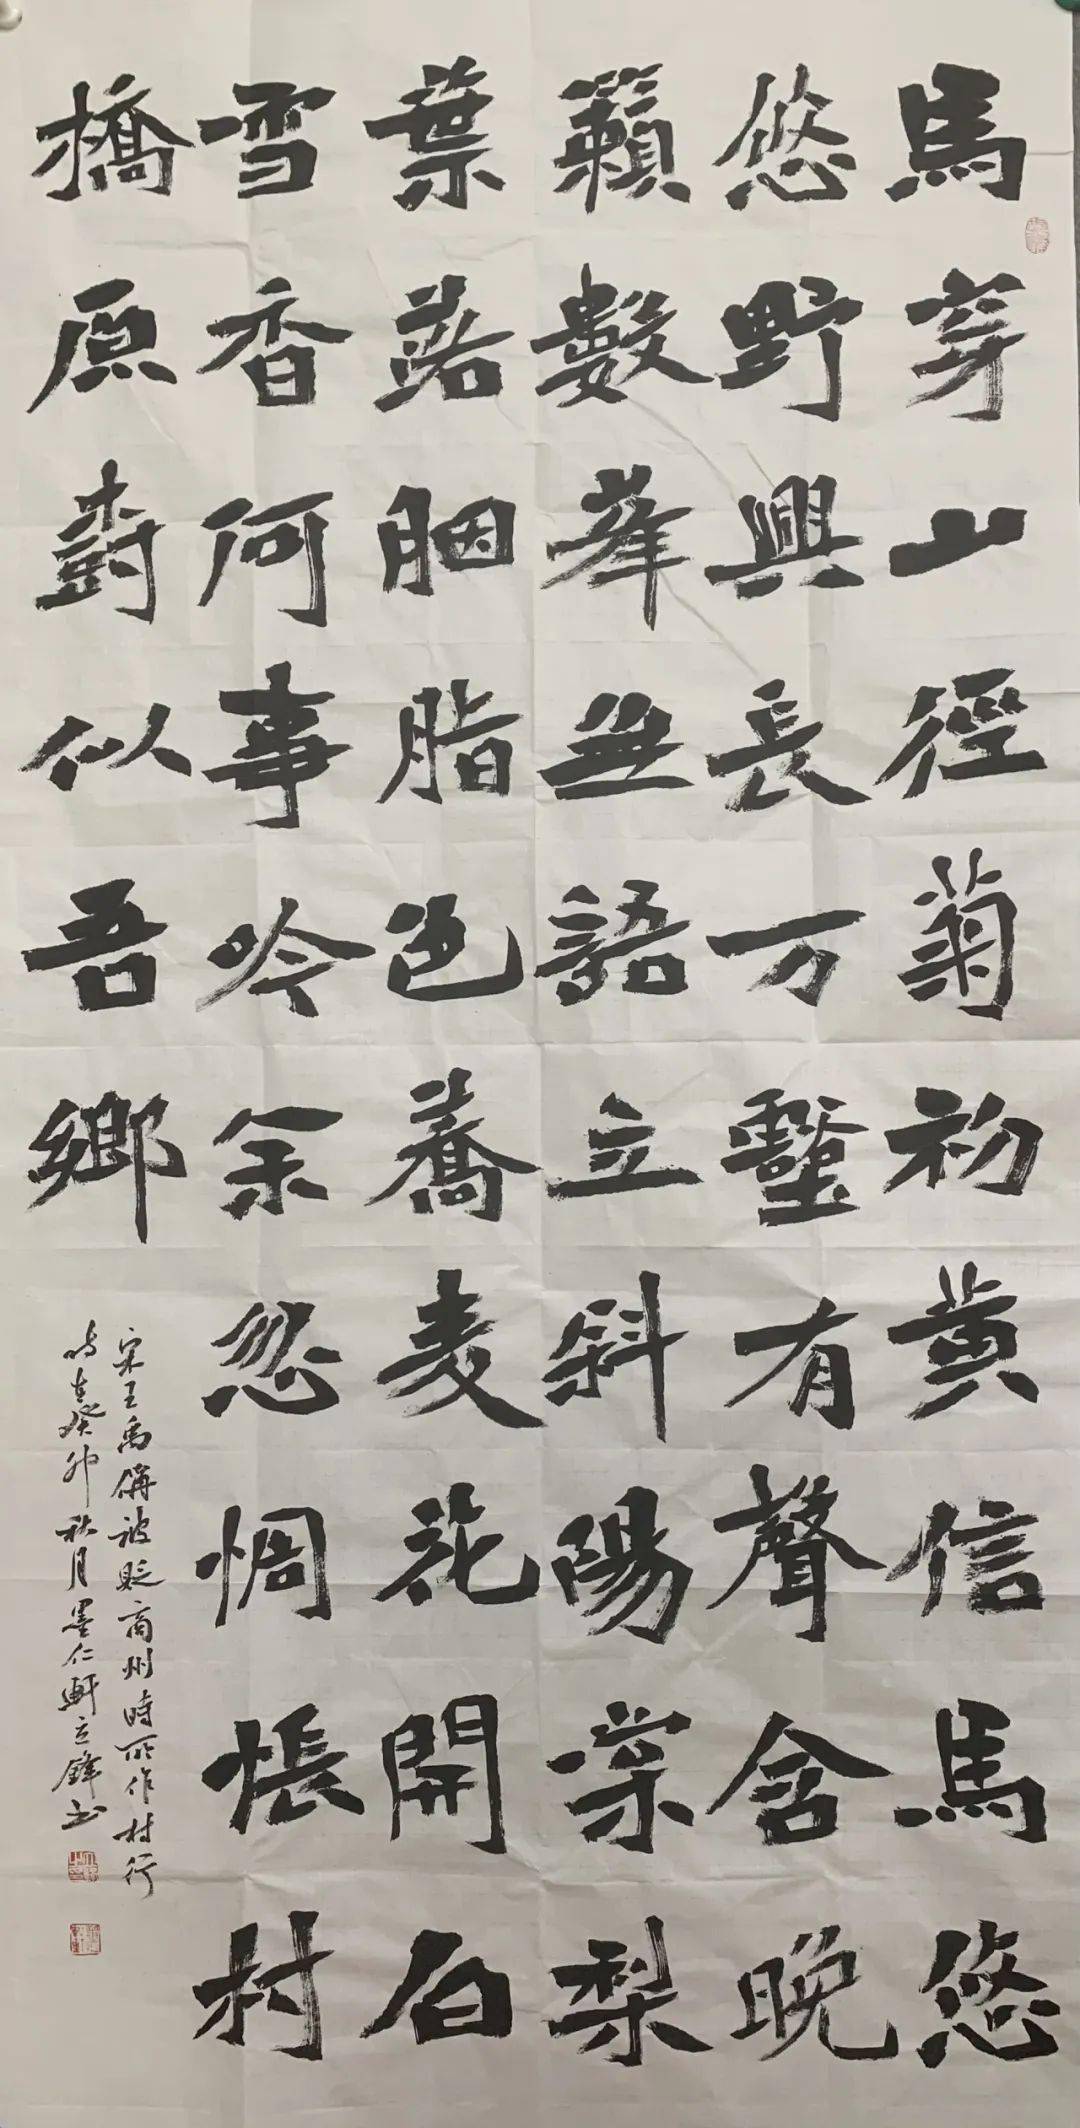 馬穿山徑菊初黄信馬悠
悠野興長万壑有聲含晚
籟數峯無語立斜陽棠梨
葉落胭脂色蕎麦花開白
雪香何事吟余忽惆悵村
橋原樹似吾鄉
宋王禹偁被貶商州時所作村行
時在癸卯秋月墨仁軒立鋒书